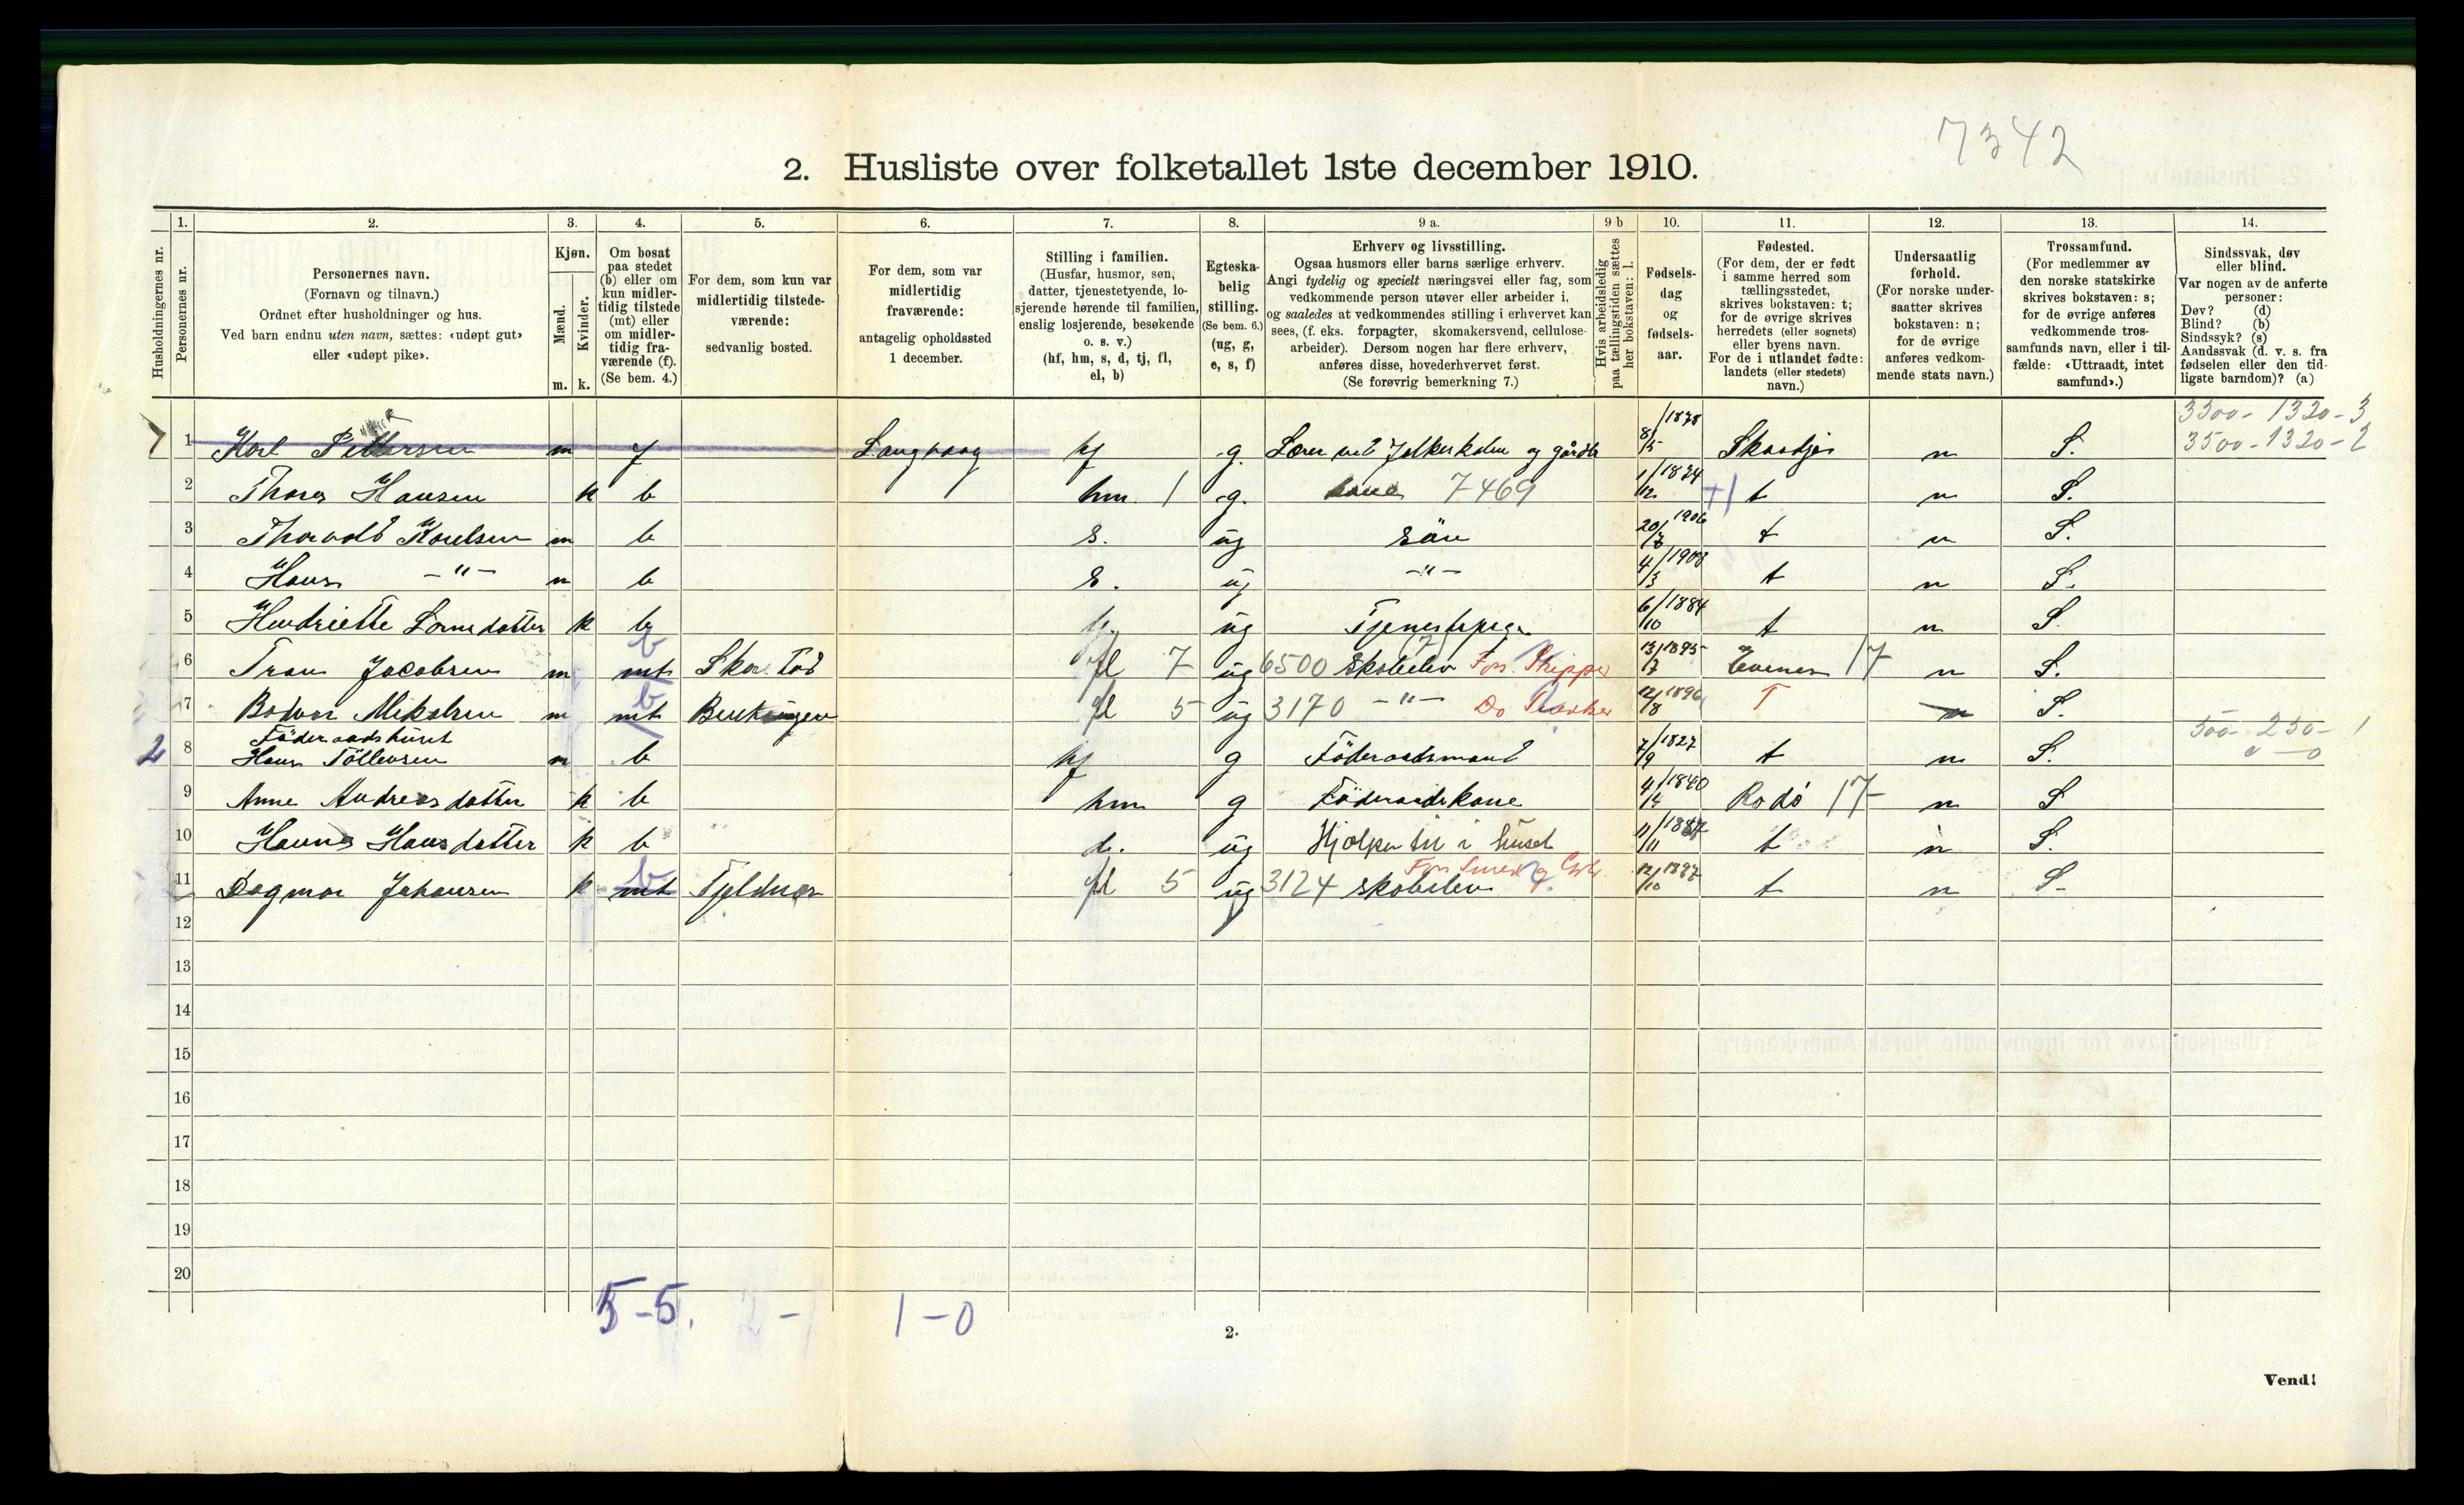 7342
2. Husliste over folketallet 1ste december 1910.
1. 2. 3. 4. 5. 6. 7. 8. 9 a. 9 b 10. 11. 12. 13. 14.
Husholdningernes nr.
Personernes nr.
Personernes navn.
(Fornavn og tilnavn.)
Ordnet efter husholdninger og hus.
Ved barn endnu uten navn, sættes: «udøpt gut»
eller «udøpt pike».
Kjøn.
Mænd.
Kvinder.
m. k.
Om bosat
paa stedet
(b) eller om
kun midler-
tidig tilstede
(mt) eller
om midler-
tidig fra-
værende (f).
(Se bem. 4.)
For dem, som kun var
midlertidig tilstede-
værende:
sedvanlig bosted.
For dem, som var
midlertidig
fraværende:
antagelig opholdssted
1 december.
Stilling i familien.
(Husfar, husmor, søn,
datter, tjenestetyende, lo-
sjerende hørende til familien,
enslig losjerende, besøkende
o. s. v.)
(hf, hm, s, d, tj, fl,
el, b)
Egteska-
belig
stilling.
(Se bem. 6.)
(ug, g,
e, s, f)
Erhverv og livsstilling.
Ogsaa husmors eller barns særlige erhverv.
Angi tydelig og specielt næringsvei eller fag, som
vedkommende person utøver eller arbeider i,
og saaledes at vedkommendes stilling i erhvervet kan
sees, (f. eks. forpagter, skomakersvend, cellulose-
arbeider). Dersom nogen har flere erhverv,
anføres disse, hovederhvervet først.
(Se forøvrig bemerkning 7.)
Hvis arbeidsledig
paa tællingstiden sættes
her bokstaven: l.
Fødsels-
dag
og
fødsels-
aar.
Fødested.
(For dem, der er født
i samme herred som
tællingsstedet,
skrives bokstaven: t;
for de øvrige skrives
herredets (eller sognets)
eller byens navn.
For de i utlandet fødte:
landets (eller stedets)
navn.)
Undersaatlig
forhold.
(For norske under-
saatter skrives
bokstaven: n;
for de øvrige
anføres vedkom-
mende stats navn.)
Trossamfund.
(For medlemmer av
den norske statskirke
skrives bokstaven: s;
for de øvrige anføres
vedkommende tros-
samfunds navn, eller i til-
fælde: «Uttraadt, intet
samfund».)
Sindssvak, døv
eller blind.
Var nogen av de anførte
personer:
Døv? (d)
Blind? (b)
Sindssyk? (s)
Aandssvak (d. v. s. fra
fødselen eller den tid-
ligste barndom)? (a)
3500 - 1320 - 3
1 Karl Pettersen m f Langvaag hf g. Lærer ved og 8/5 1878 n S. 3500 - 1320 - 2
2 Hansen k b hm 1 g. kone 7469 1/12 t n S.
3 Thorvald Karelsen m b s. ug Sön 20/ 1906 t n S.
4 Hans -"- m b s. ug -"- 4/3 1908 t n S.
5 Hendriette k b ug 6/10 1884 t n S
b
6 Jacobsen m mt fl 7 ug 6500 skoleelev Fors. Skipper 13/7 1895 Evenes 17 n S.
b
7 Mikalsen m mt fl 5 ug 3170 -"- Do 12/8 1896 T n S.
Föderaadshuset 500 - 250 - 1
2 8 Hans Töllevsen m b hf g Föderaadsmand 7/9 1827 t n S.
9 Anne Andreasdatter k b hm g Föderaadskone 4/4 1840 Rodö 17- n S
10 Hanna Hansdatter k b d. ug Hjælper til i huset 11/11 t n S.
b
11 Dagmar Johansen k mt Tjeldnes fl 5 ug 3124 skoleelev Fors Smed og 12/10 1897 t n S-
12
13
14
15
16
17
18
19
20
5-5. 2-1 1-0
2.
Vend!